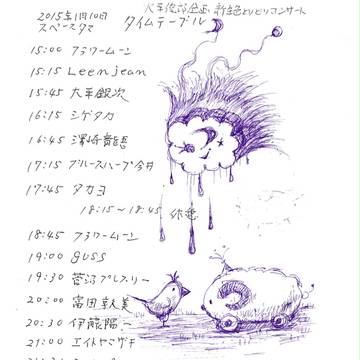 2015年1月10日
スペースタマ
タイムテーブル
15:00 フラワームーン
15:15 Leemjean
15:45 大平銀次
16:15 シゲタカ
16:45 澤崎貴悟
17:15 ブルースハープ今井
17:45 タカヨ
18:15～18:45 休憩
18:45 フラワームーン
19:00 guss
19:30 菅沼プレスリー
20:00 富田幸美
20:30 伊藤陽一
21:00 エイトヤマザキ